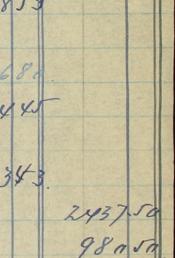 853
688.
445
343.
2437.50
980 50